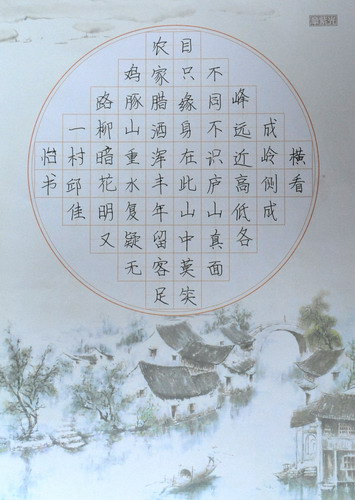 横看
成岭侧成
峰远近高低各
不同不识庐山真面
目只缘身在此山中莫笑
农家腊酒浑丰年留客足
鸡豚山重水复疑无
路柳暗花明又
一村邱佳
怡书